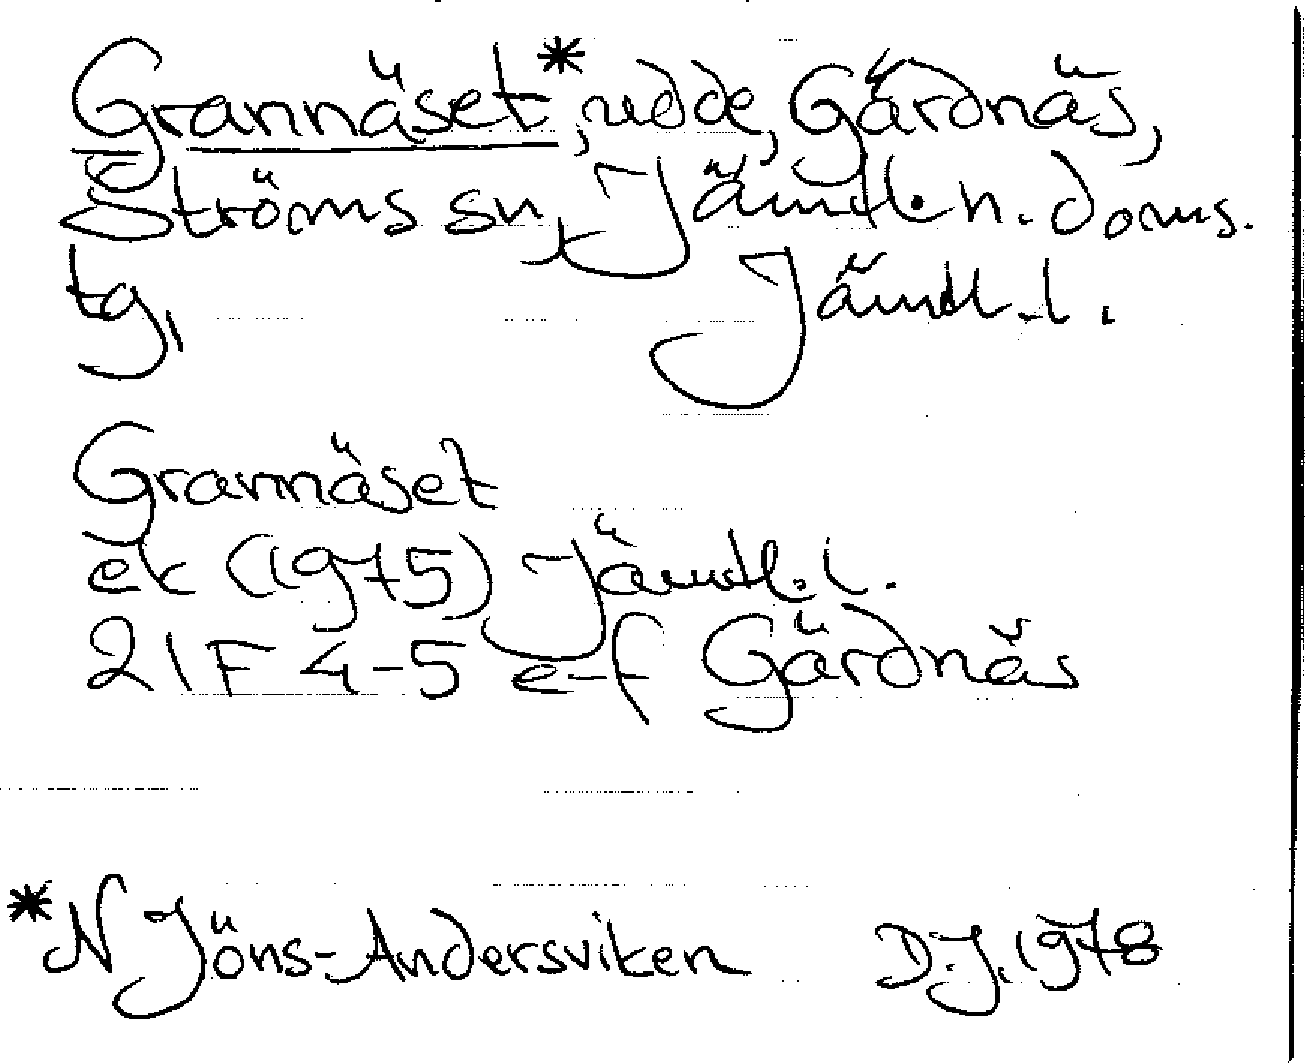 Grannäset*, udde, Gärdnäs,
Ströms sn, Jämtl. n. doms.
tg, Jämtl. l.
Grannäset
ek (1975) Jämtl. l.
21 F 4-5 e-f Gärdnäs
*N Jöns-Andersviken D.J. 1978